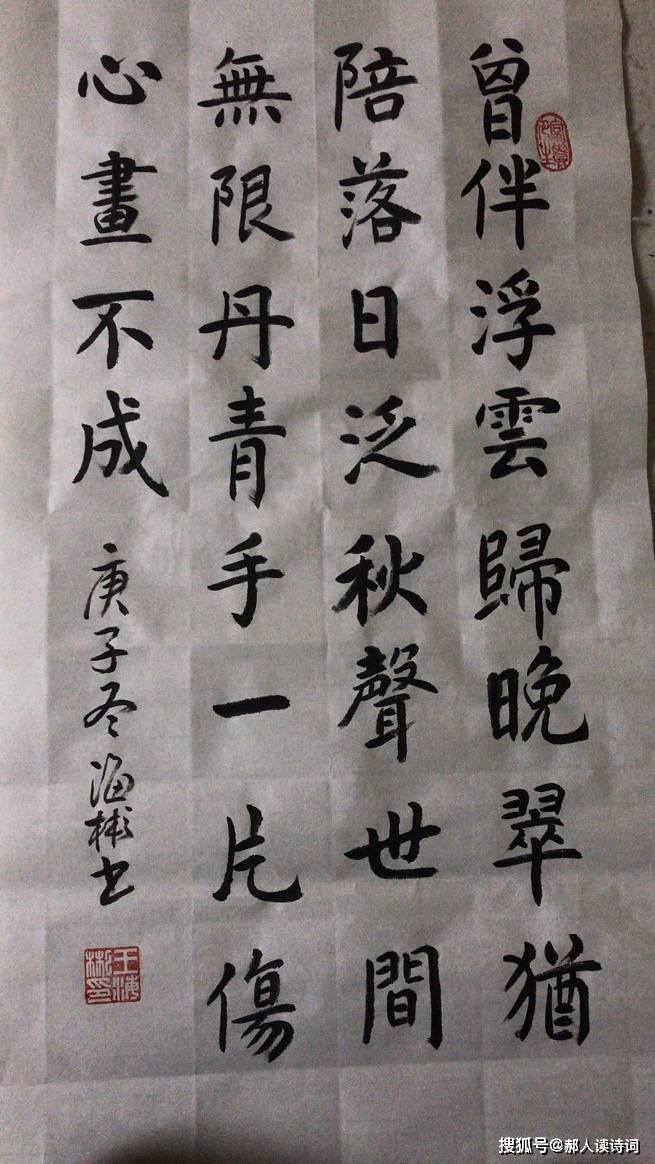 曾伴浮雲歸晚翠猶
陪落日泛秋聲世間
無限丹青手一片傷
心畫不成
庚子冬海彬书
王海彬印
搜狐号@郝人读诗词